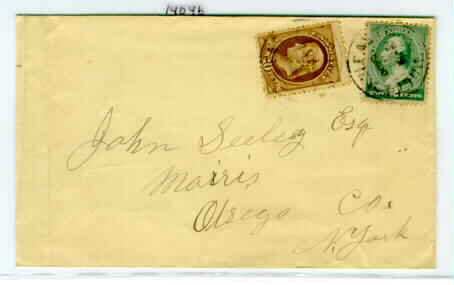 14046
John Seeley Esq
Morris
Otsego Co.
N. York